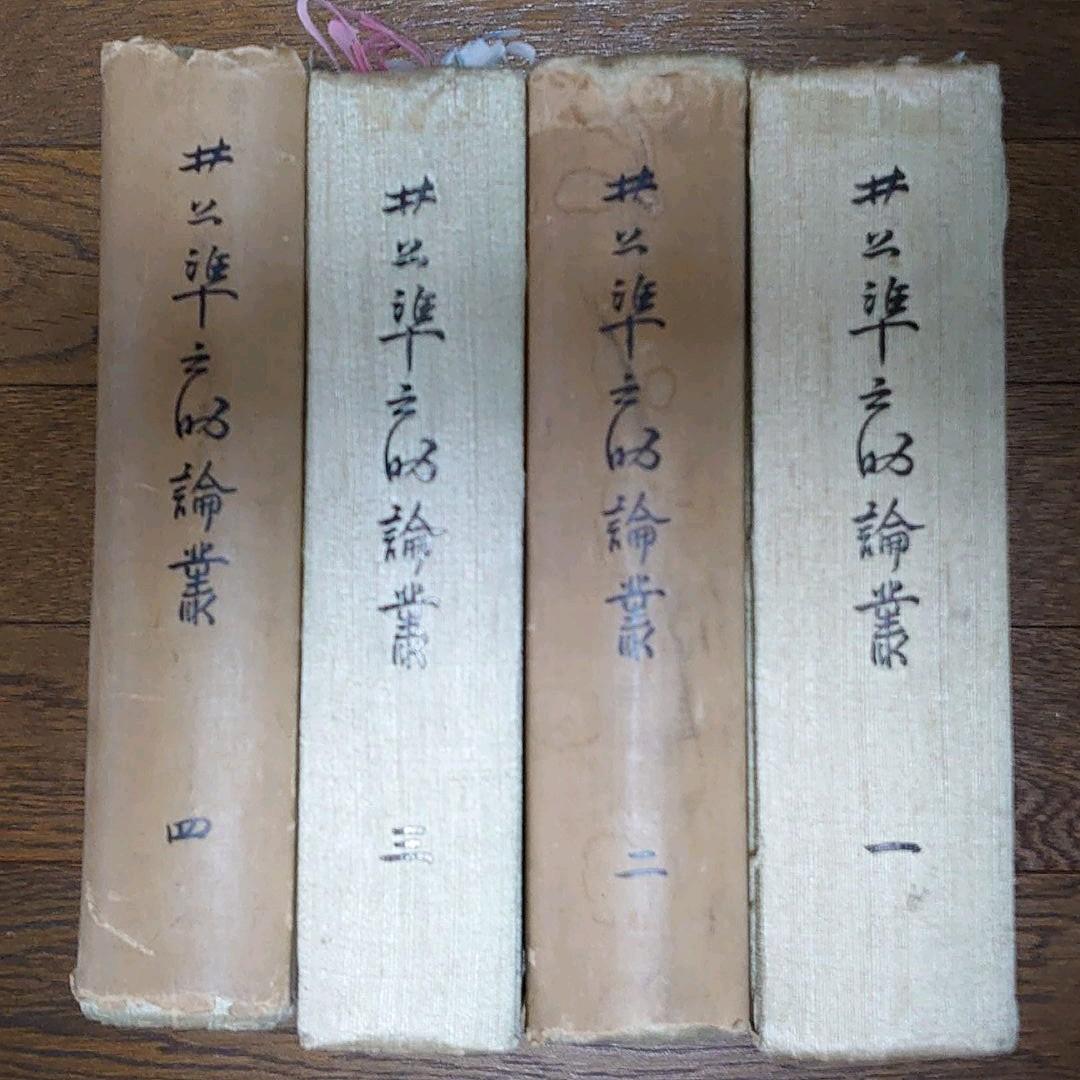 井上準之助論叢 一
井上準之助論叢 二
井上準之助論叢 三
井上準之助論叢 四